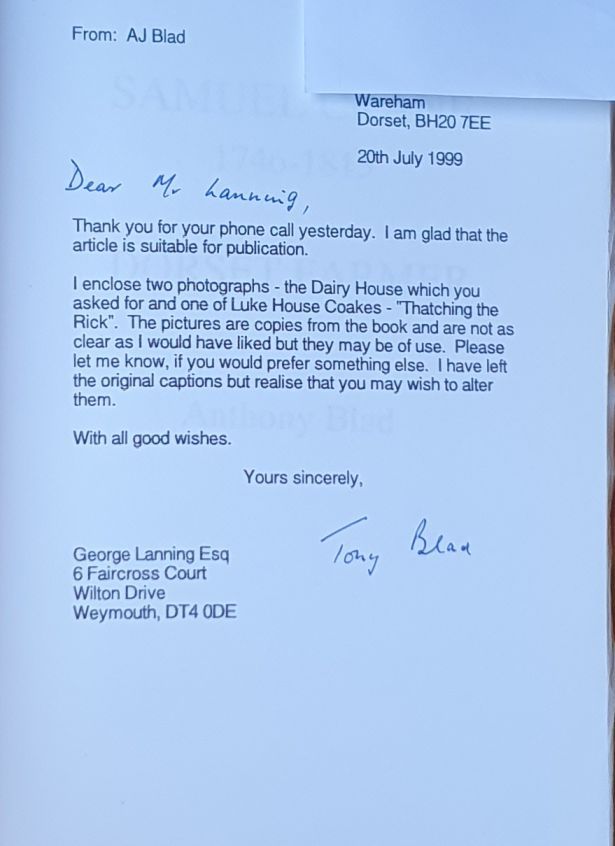 From: AJ Blad
Wareham
Dorset, BH20 7EE
20th July 1999
Dear Mr Lanning,
Thank you for your phone call yesterday. I am glad that the
article is suitable for publication.
I enclose two photographs - the Dairy House which you
asked for and one of Luke House Coakes - "Thatching the
Rick". The pictures are copies from the book and are not as
clear as I would have liked but they may be of use. Please
let me know, if you would prefer something else. I have left
the original captions but realise that you may wish to alter
them.
With all good wishes.
Yours sincerely,
Tony Blad
George Lanning Esq
6 Faircross Court
Wilton Drive
Weymouth, DT4 0DE
SAMUEL
DORSET FARMER
Anthony Blad